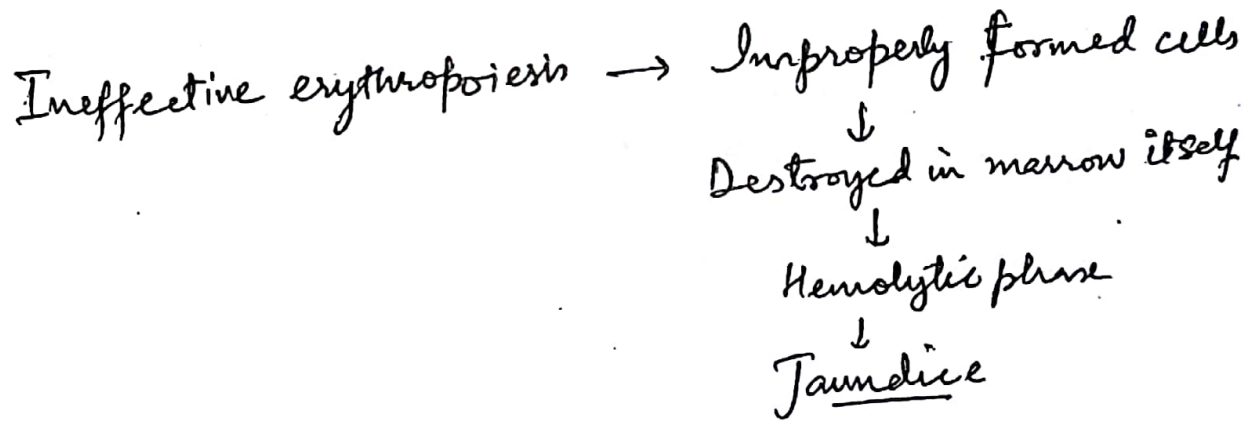 Ineffective erythropoiesis → Improperly formed cells
↓
Destroyed in marrow itself
↓
Hemolytic phase
↓
Jaundice